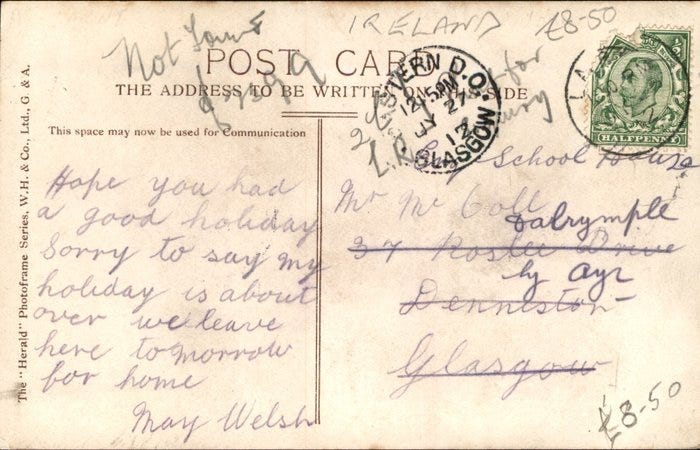 IRELAND £8-50
Not found
POST CARD
THE ADDRESS TO BE WRITTEN ON THIS SIDE
This space may now be used for Communication
Hope you had
a good holiday
Sorry to say my
holiday is about
over we leave
here tomorrow
for home
May Welsh
The "Herald" Photoframe Series, W.H. & Co., Ltd., G. & A.
12.15PM
JY 27
12
GLASGOW
HALFPENNY
School House
Mr Mc Coll
Dalrymple
37 Drive
by Ayr
Denniston
Glasgow
£8-50